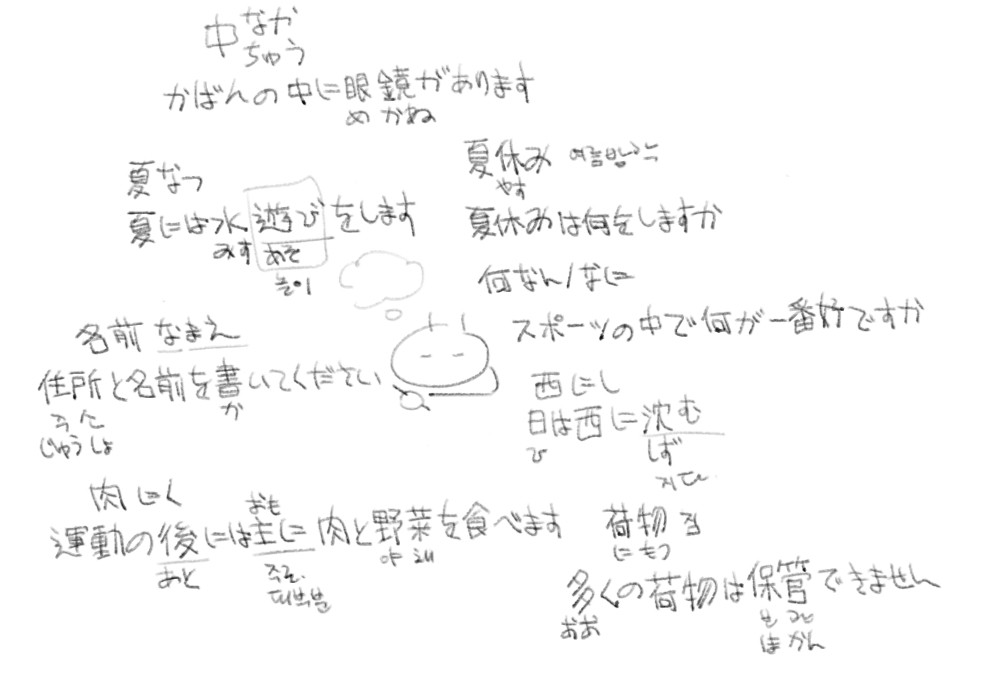 中 なか
ちゅう
かばんの中に眼鏡があります
めかね
夏 なつ
夏には水遊びをします
みず あそ
놀이
夏休み 여름방학
やす
夏休みは何をしますか
何 なん/なに
スポーツの中で何が一番好ですか
名前 なまえ
住所と名前を書いてください
주소 か
じゅうしょ
西 にし
日は西に沈む
ひ しず
지다
肉 にく
おも
運動の後には主に肉と野菜を食べます
あと 주로. や さい
대부분
荷物 짐
にもつ
多くの荷物は保管できません
おお 보관
ほかん